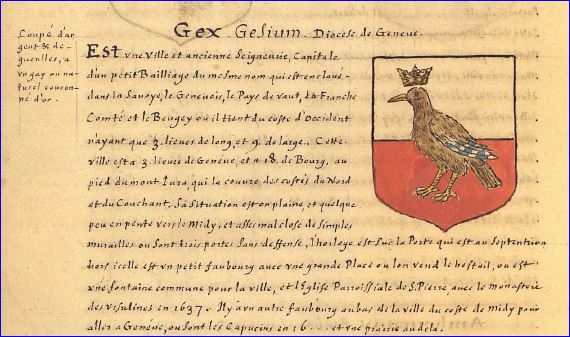 Gex. Gesium. Diocese de Geneve.
Coupé d'ar
gent & de
gueulles, a
un gay au na
turel couron
né d'or.
Est une Ville et ancienne Seigneurie, Capitale
d'un petit Bailliage du mesme nom qui est enclavé
dans la Savoye, le Genevois, le Pays de Vaut, La Franche
Comté et le Beugey ou il tient du costé d'Occident
n'ayant que 3. lieues de long, et 9. de large. Cette
ville est a 3. lieues de Genéve, et a 18. de Bourg, au
pied du mont Iura qui la couure des costés du Nord
et du Couchant. Sa Situation est en plaine, et quelque
peu en pente vers le Midy, et asses mal close de simples
murailles ou Sont trois portes Sans deffense, l'horloge est Sur la Porte qui est au Septentrion
hors icelle est un petit faubourg auec une grande Place ou lon vend le bestail, ou est
une fontaine commune pour la ville, et l'Eglise Parroissiale de S. Pierre auec le monastere
des Ursulines en 1637. Il y a un autre faubourg au bas de la ville du costé de midy pour
aller a Genéve, ou Sont les Capucins en 16... et une prairie au dela.